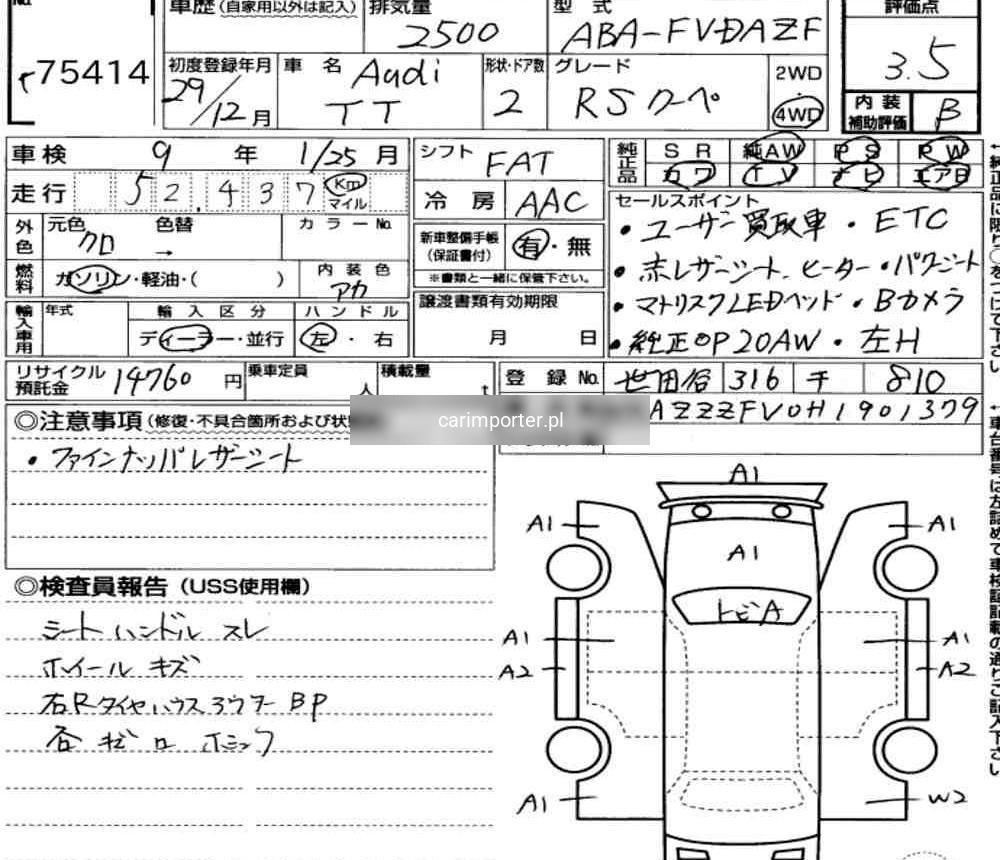 No.
75414
車歴 (自家用以外は記入)
排気量
2500
型式
ABA-FVDAZF
評価点
3.5
初度登録年月
29/12月
車名
Audi
TT
形状・ドア数
2
グレード
RSクーペ
2WD
・
4WD
内装
補助評価
B
車検 9年 1/25月
走行 52,437 Km
マイル
シフト FAT
冷房 AAC
純正品
SR 純AW PS PW
カワ TV ナビ エアB
外色
元色
クロ
色替
→
カラーNo.
新車整備手帳
(保証書付)
有・無
※書類と一緒に保管下さい。
燃料
ガソリン・軽油・( )
内装色
アカ
セールスポイント
・ユーザー買取車・ETC
・赤レザーシート、ヒーター・パワーシート
・マトリスクLEDヘッド・Bカメラ
・純正OP20AW・左H
輸入車用
年式
輸入区分
ディーラー・並行
ハンドル
左・右
譲渡書類有効期限
月 日
リサイクル
預託金
14760円
乗車定員
人
積載量
t
登録No.
世田谷 316 810
AZZZFV0H1901379
carimporter.pl
◎注意事項(修復・不具合箇所および状
・ファインナッパレザーシート
◎検査員報告(USS使用欄)
シートハンドル スレ
ホイール キズ
右Rタイヤハウス BP
A1
A1
A1
A1
トビA
A1
A1
A2
A2
A1
W2